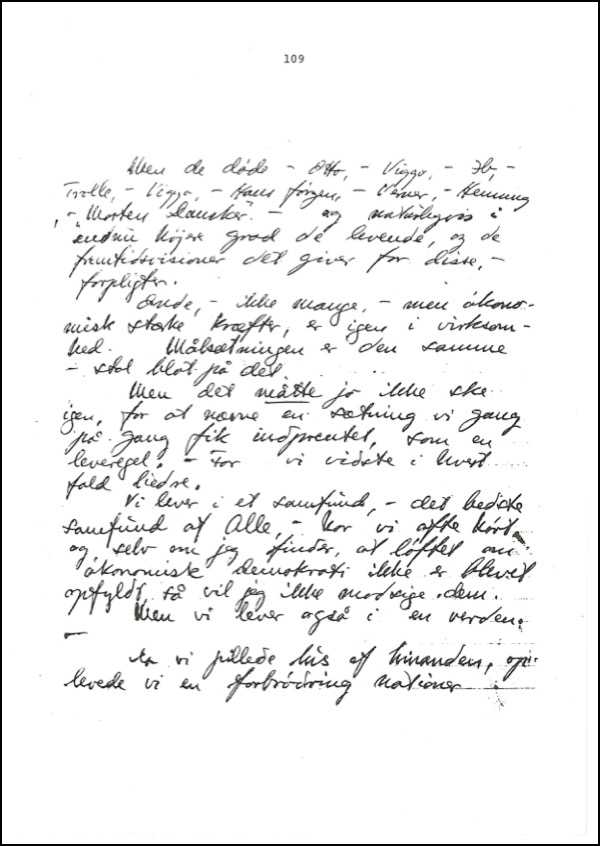 109
Men de døde - Otto, - Viggo, - Ib, -
Trolle, - Viggo, - Hans Jørgen, - Verner, - Henning
, - "Morten Dansker". - og naturligvis i
endnu højere grad de levende, og de
fremtidsvisioner det giver for disse, -
forpligter.
Onde, - ikke mange, - men økono-
misk stærke kræfter, er igen i virksom-
hed. Målsætningen er den samme
- stol blot på det.
Men det måtte jo ikke ske
igen, for at nævne en sætning vi gang
på gang fik indprentet, som en
leveregel. - For vi vidste i hvert
fald bedre.
Vi lever i et samfund, - det bedste
samfund af Alle, - har vi ofte hørt
og, selv om jeg finder, at løftet om
økonomisk demokrati ikke er blevet
opfyldt, så vil jeg ikke modsige dem.
Men vi lever også i en verden.
-
Da vi pillede lus af hinanden, op-
levede vi en forbrødring nationer